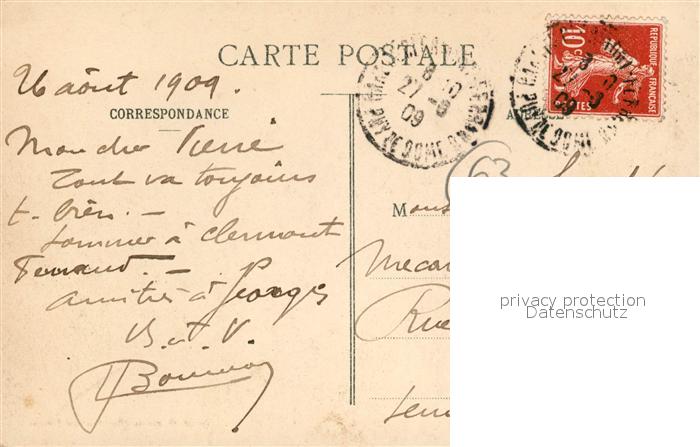 CARTE POSTALE
26 août 1909.
CORRESPONDANCE
Mon cher Pierre
Tout va toujours
t. bien. —
sommes à Clermont
Ferrand. —
amitiés à Georges
B. à V.
REPUBLIQUE FRANÇAISE
10c
POSTES
27 -8
09
PUY DE DOME
63
Mons
Mecan
Rue
privacy protection
Datenschutz